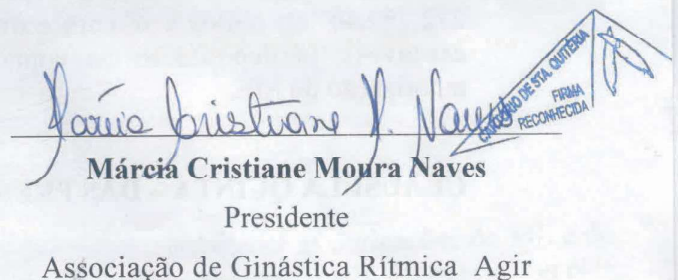 Márcia Cristiane M. Naves
CARTÓRIO DE STA. QUITÉRIA
FIRMA
RECONHECIDA
Márcia Cristiane Moura Naves
Presidente
Associação de Ginástica Rítmica Agir